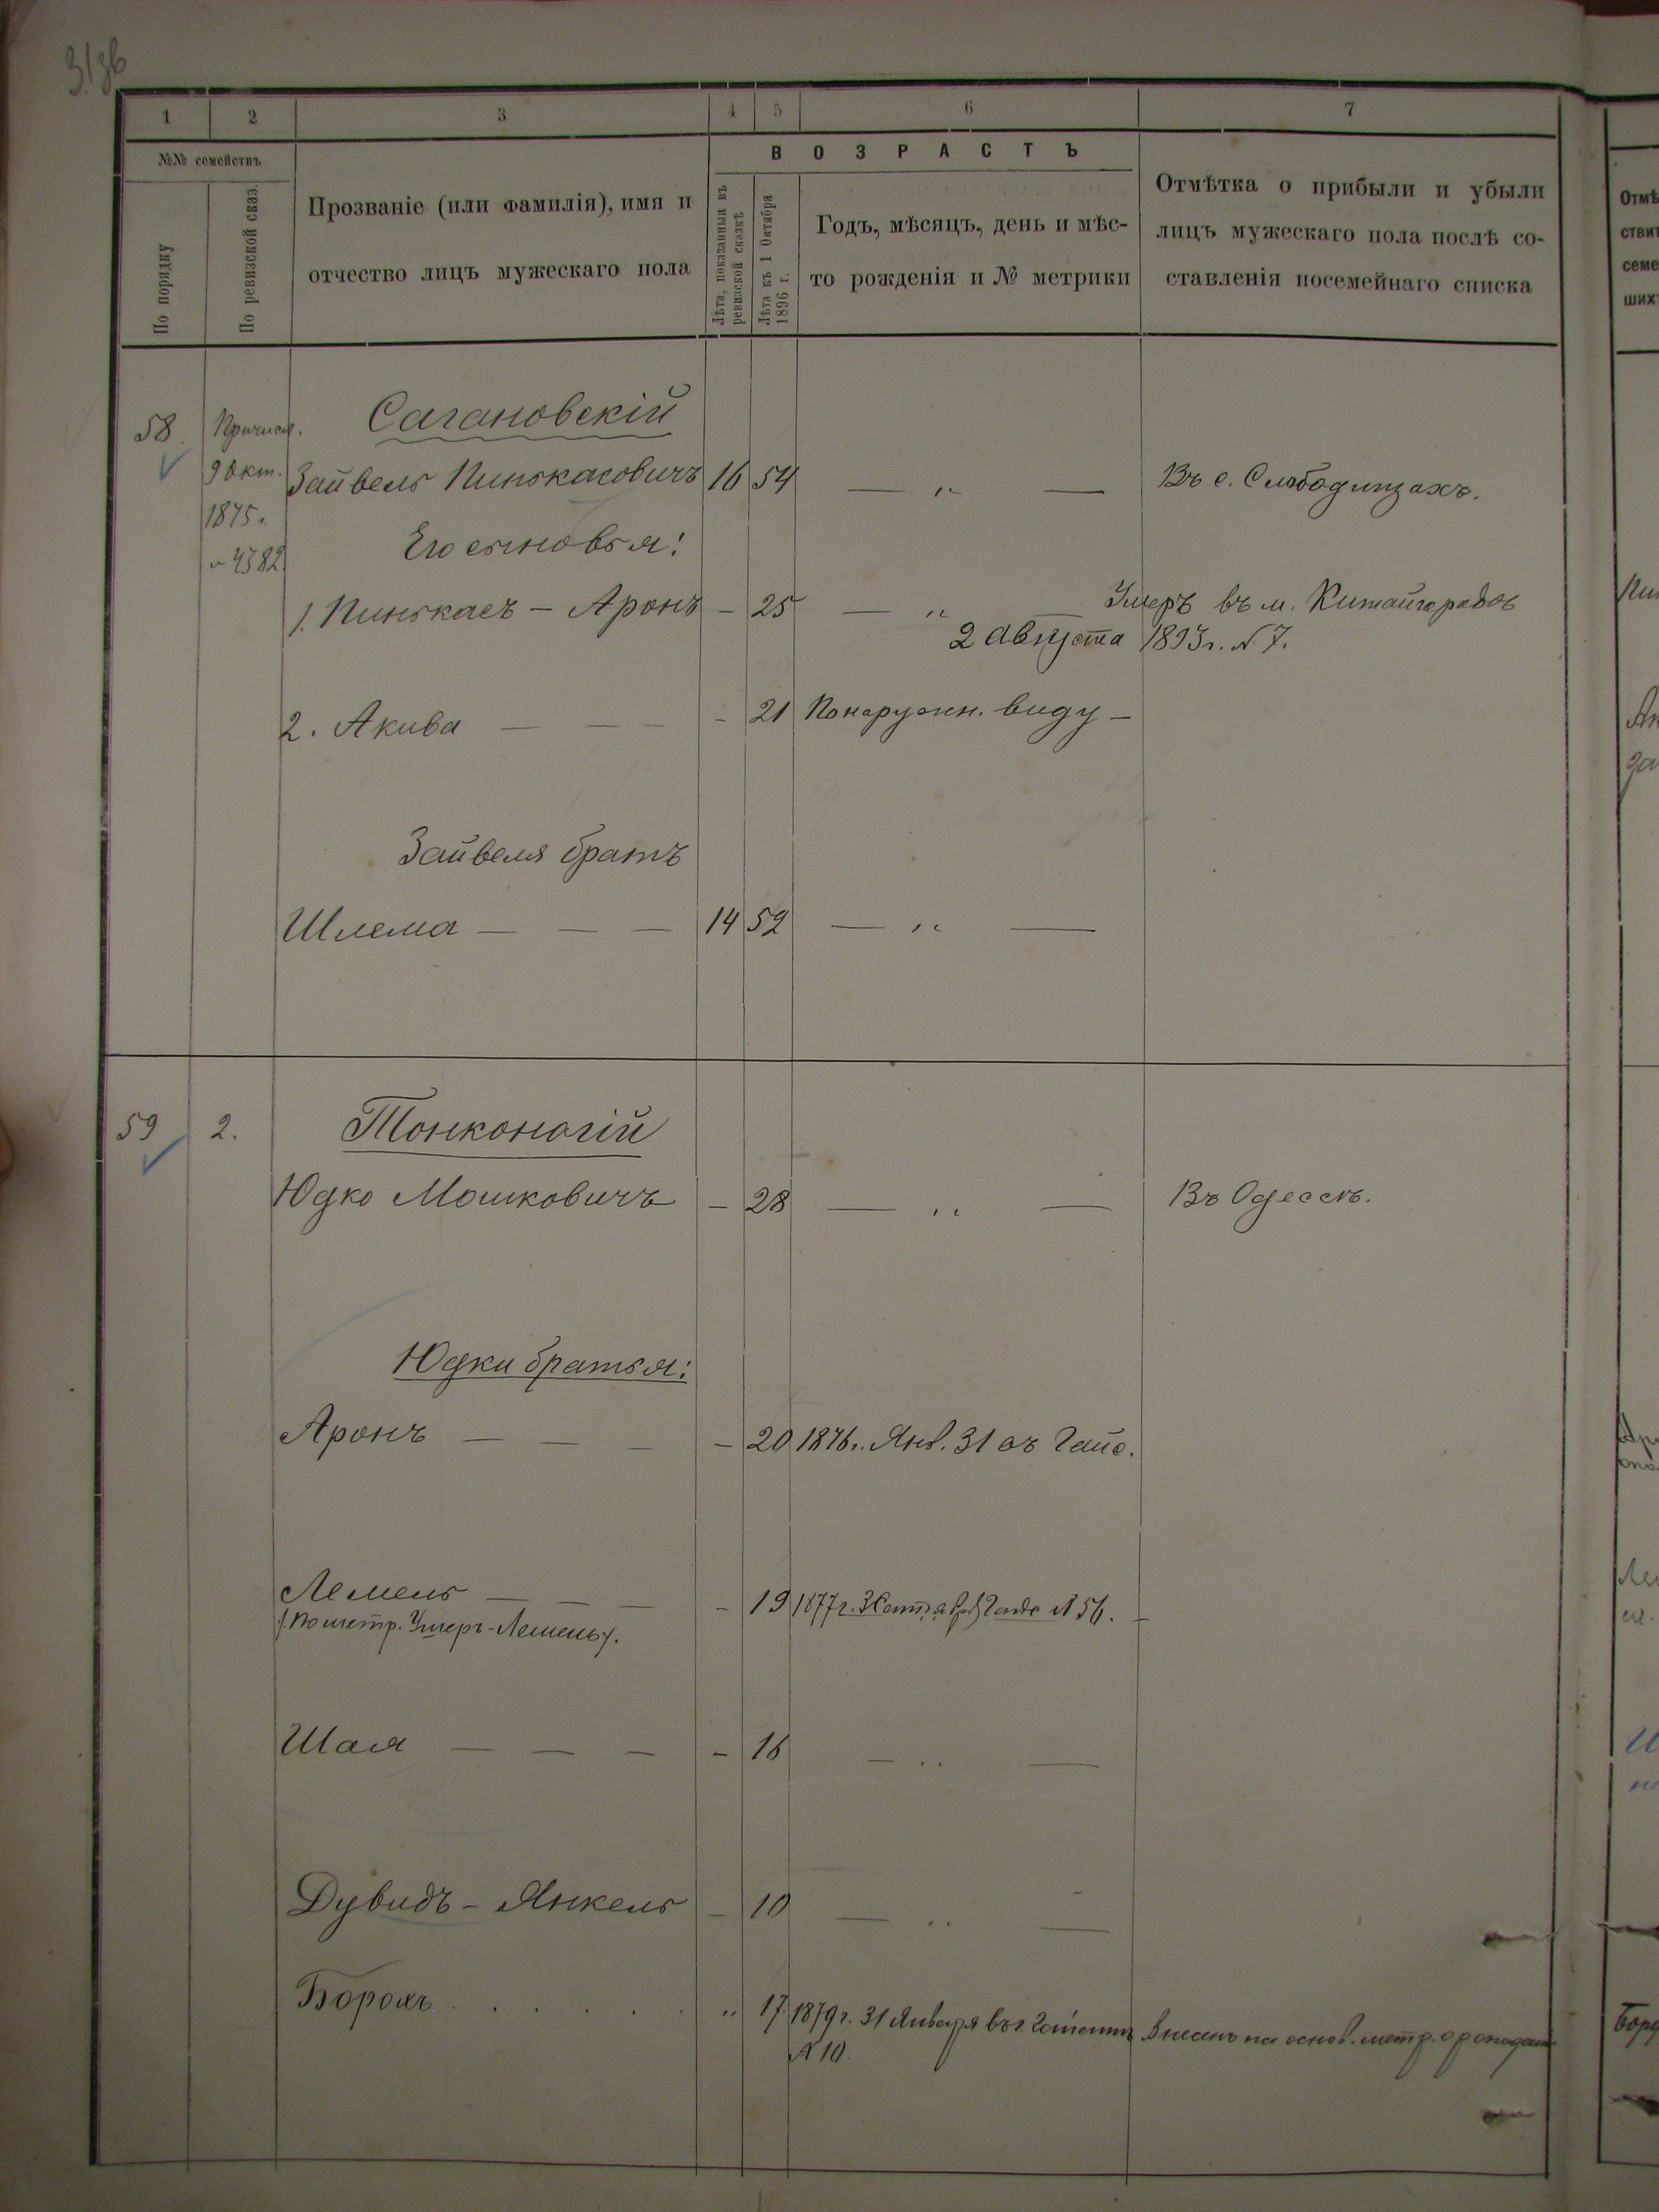 1 2 3 4 5 6 7
№№ семействъ
По порядку
По ревизской сказ.
Прозваніе (или фамилія), имя и
отчество лицъ мужескаго пола
ВОЗРАСТЪ
Лѣта, показанныя въ
ревизской сказкѣ
Лѣта къ 1 Октября
1896 г.
Годъ, мѣсяцъ, день и мѣс-
то рожденія и № метрики
Отмѣтка о прибыли и убыли
лицъ мужескаго пола послѣ со-
ставленія посемейнаго списка
58 Причисл. Сагановскій
9 Окт. Зайвель Пинькасовичъ 16 54 — " — Въ с. Слободищахъ.
1875 г.
4782
Его сыновья:
1. Пинькасъ - Аронъ - 25 — " — Умеръ въ м. Китайгородѣ
2 Августа 1893 г. № 7.
2. Акива — — — - 21 По наружн. виду -
Зайвеля братъ
Шлема — — — 14 52 — " —
59 2. Тонконогій
Юдко Мошковичъ - 28 — " — Въ Одессѣ.
Юдки братья:
Аронъ — — — - 20 1876 г. Янв. 31 въ Гайс.
Лемель — — — - 19 1877 г. № 56.
(По метр. Умеръ-Лемель).
Шая — — — - 16 — " —
Дувидъ - Янкель - 10 — " —
Борохъ . . . . . " 17 1879 г. 31 Января въ г. Внесенъ на основ. метр. о рожденіи
№ 10.